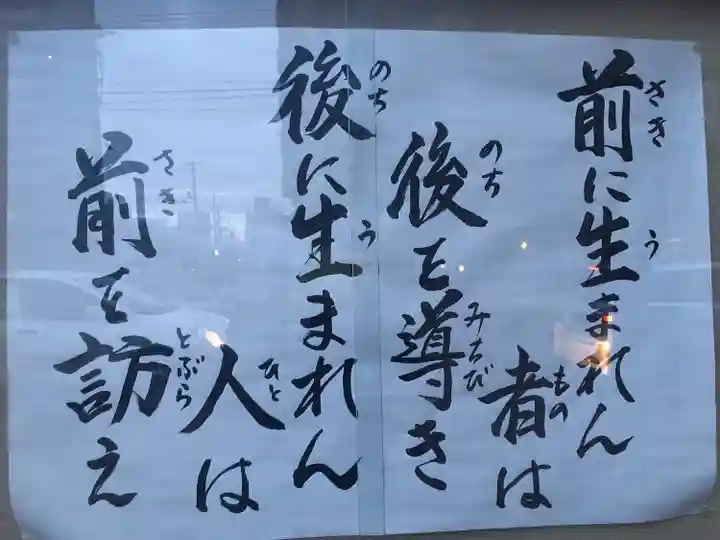 前に生まれん
者は
後を導き
後に生まれん
人は
前を訪え
さき
う
もの
のち
みちび
のち
う
ひと
さき
とぶら